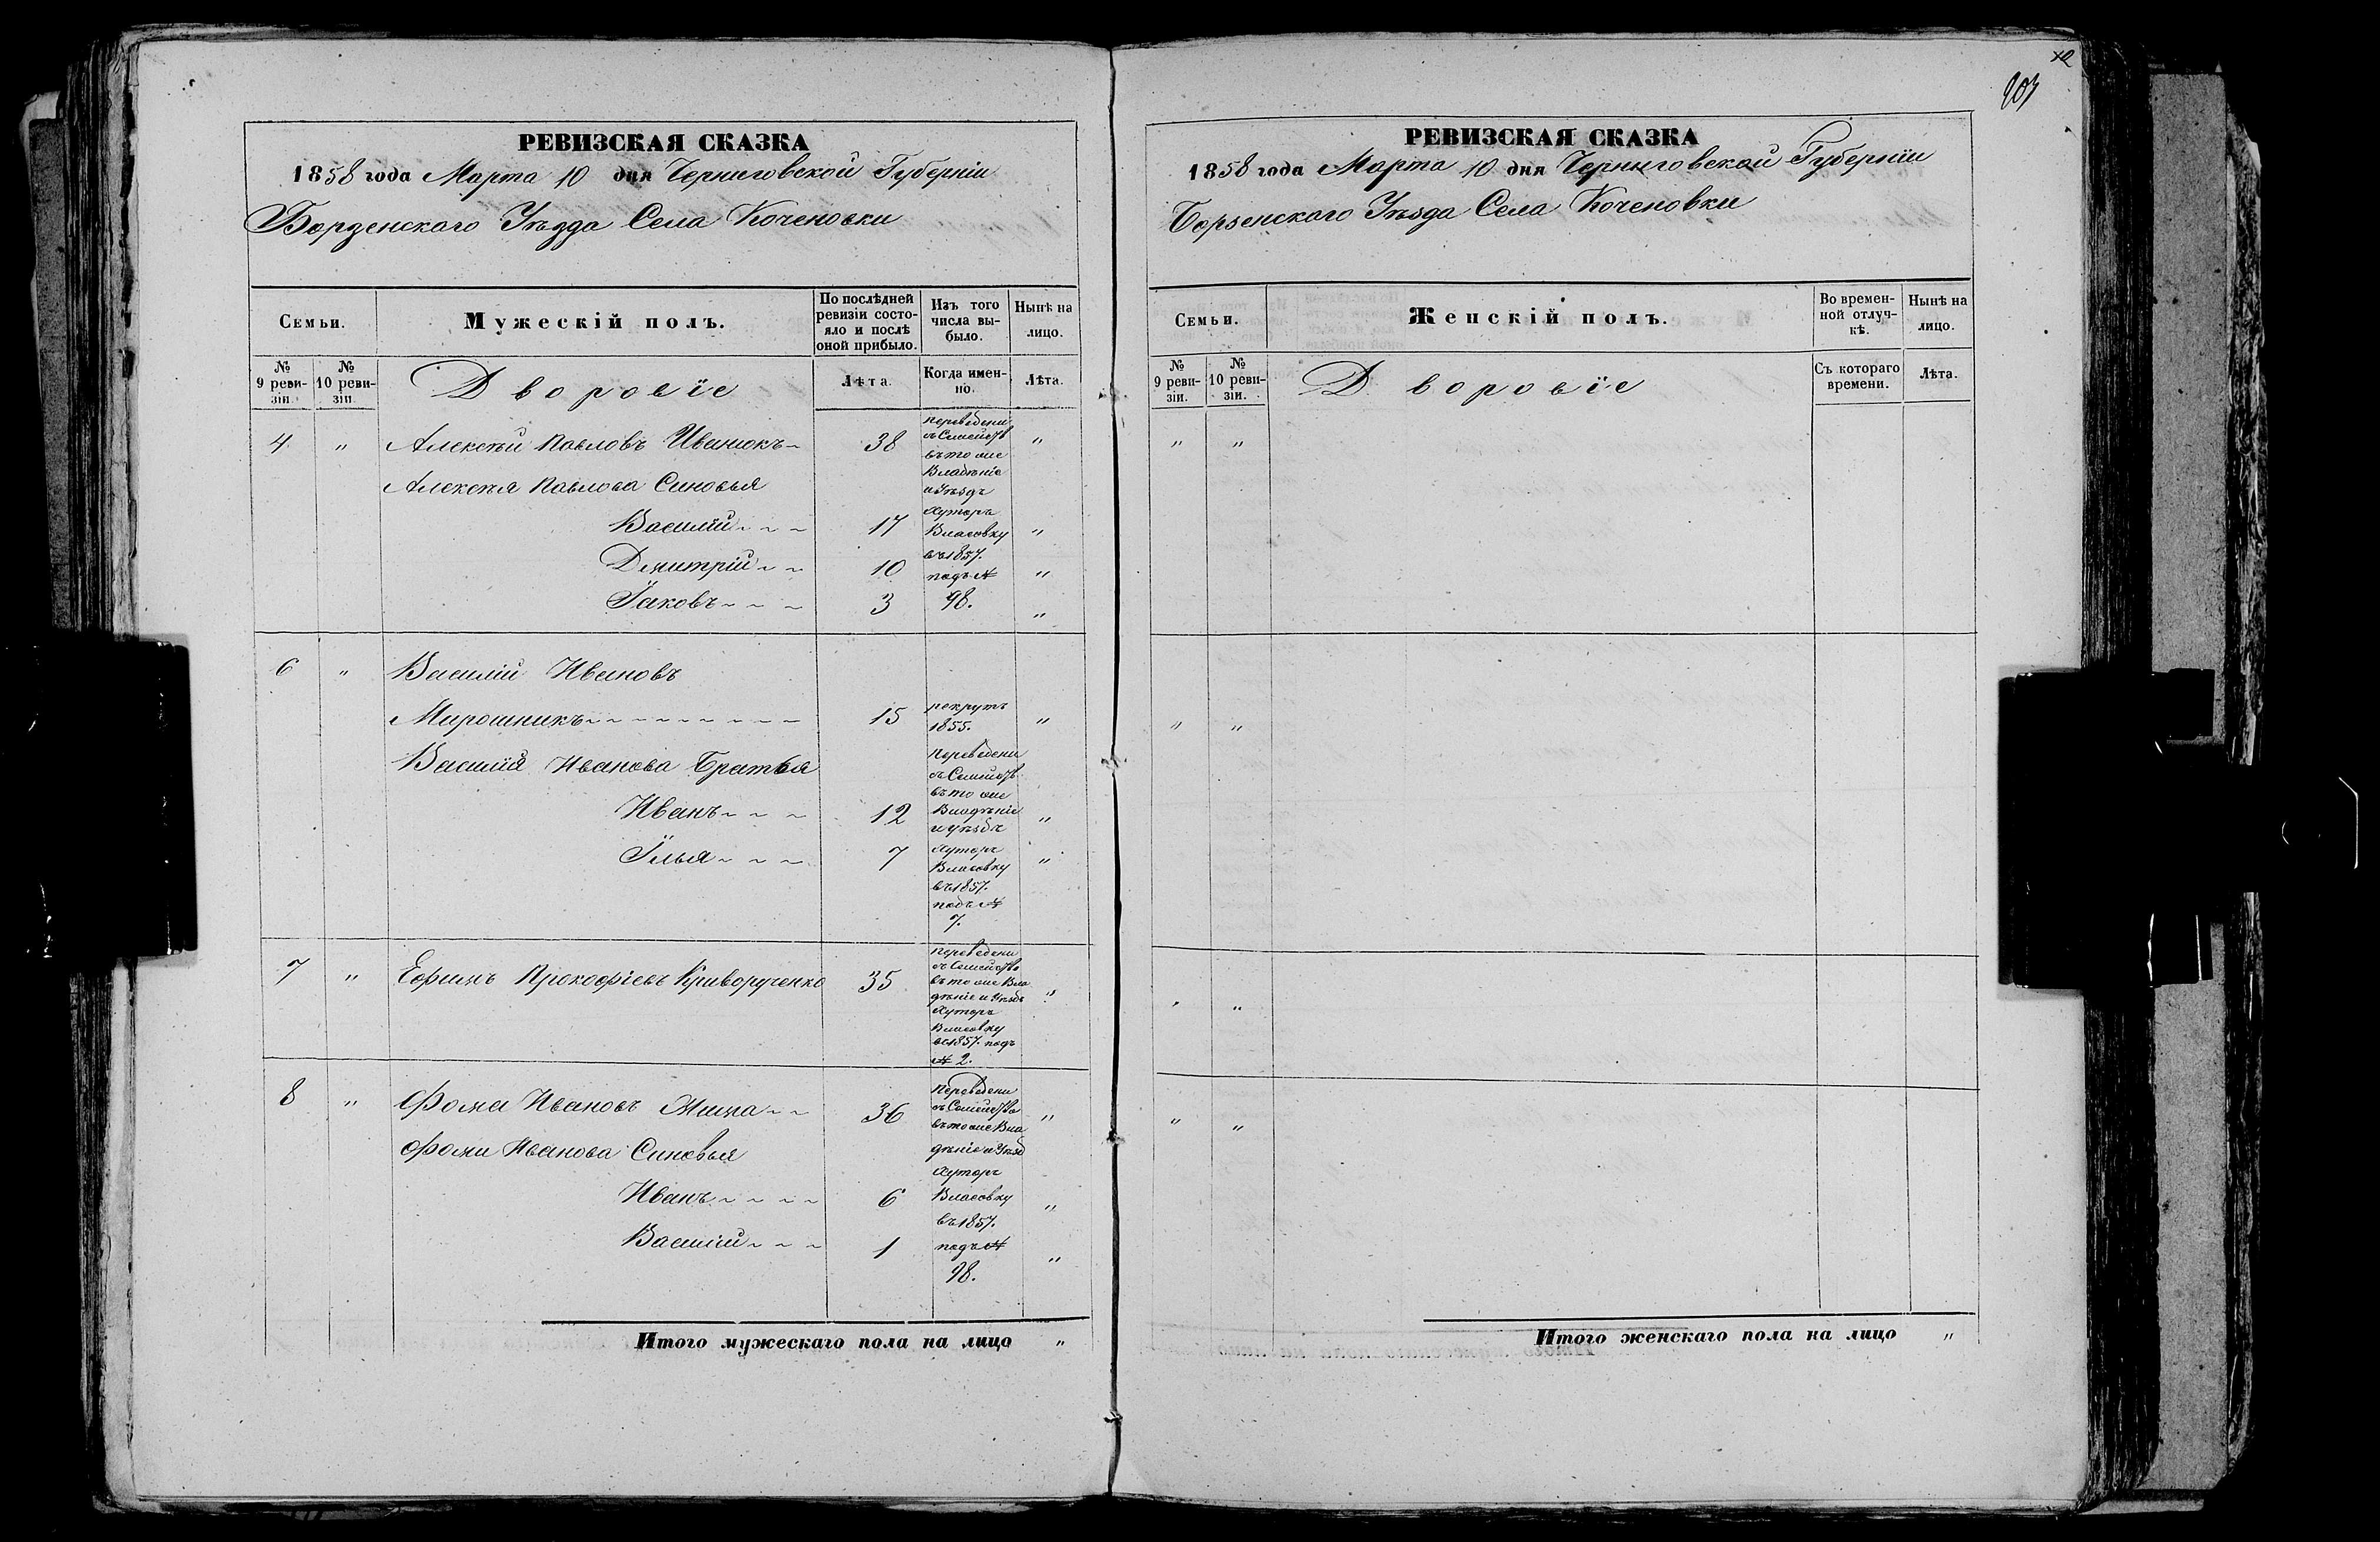 РЕВИЗСКАЯ СКАЗКА
1858 года Марта 10 дня Черниговской Губерніи
Борзенского Уѣзда Села Коченовки
Семьи.
Мужескій полъ.
По послѣдней ревизіи состояло и послѣ оной прибыло.
Изъ того числа выбыло.
Нынѣ на лицо.
№ 9 ревизіи.
№ 10 ревизіи
Дворовіе
Лѣта.
Когда именно.
Лѣта.
4 " Алексѣй Павловъ Иванюкъ 38 "
Алексѣя Павлова Синовья
Василій 17 "
Дмитрій 10 "
Іаковъ 3 "
переведени
съ Семейств
въ то же
Владѣніе
и Уѣздъ
Хуторъ
Власовку
въ 1857.
подъ №
98.
6 " Василій Ивановъ
Мирошникъ 15 рекрутъ 1855. "
Василія Иванова Братья
Иванъ 12 "
Ілья 7 "
переведени
съ Семейств
въ то же
Владѣніе
и уѣздъ
Хуторъ
Власовку
въ 1857.
подъ №
7.
7 " Ефимъ Прокофіевъ Криворученко 35 "
переведени
съ Семейство
въ то же Вла
дѣніе и Уѣздъ
Хуторъ
Власовку
въ 1857. подъ
№ 2.
8 " Фома Ивановъ 36 "
Фоми Иванова Синовья
Иванъ 6 "
Василій 1 "
Переведени
съ Семейство
въ то же Вла
дѣніе и Уѣзд
Хуторъ
Власовку
въ 1857.
подъ №
98.
Итого мужескаго пола на лицо "
РЕВИЗСКАЯ СКАЗКА
1858 года Марта 10 дня Черниговской Губерніи
Борзенского Уѣзда Села Коченовки
Семьи.
Женскій полъ.
Во временной отлучкѣ.
Нынѣ на лицо.
№ 9 ревизіи.
№ 10 ревизіи.
Дворовіе
Съ котораго времени.
Лѣта.
" "
" "
" "
" "
Итого женскаго пола на лицо "